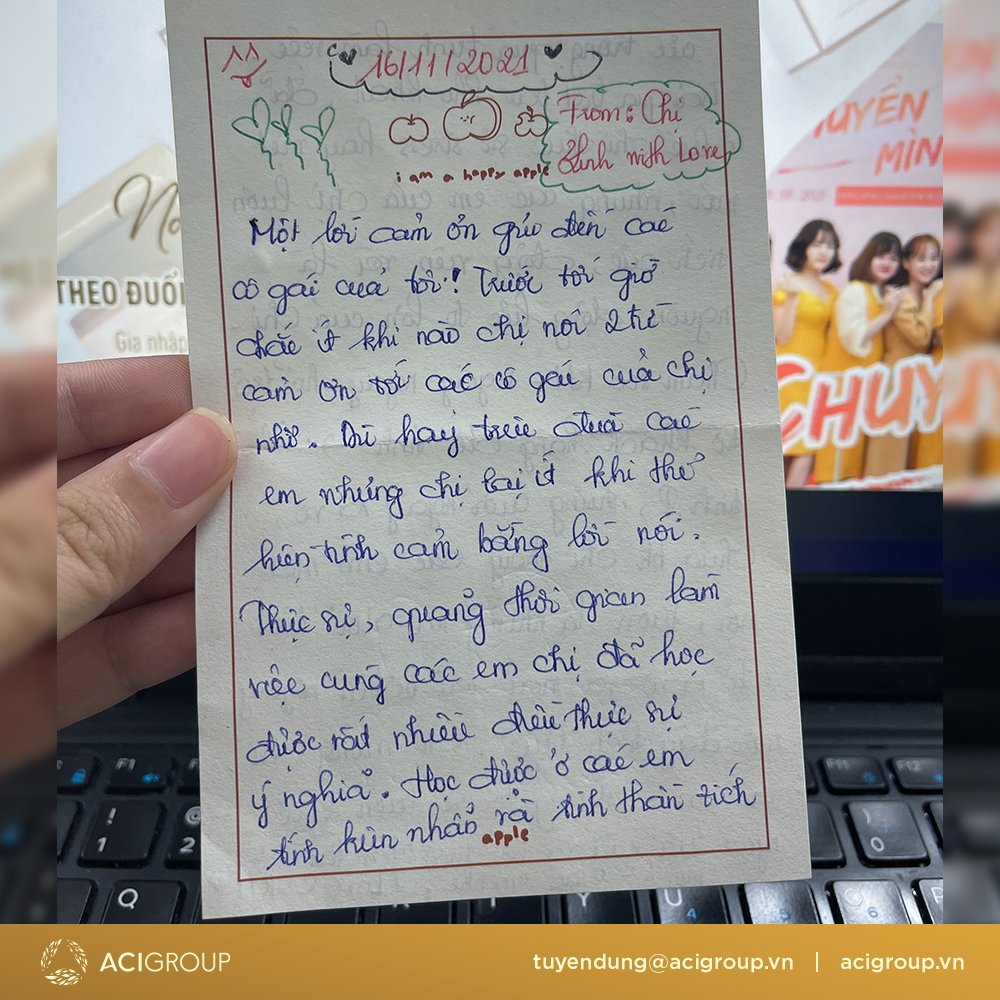 16/11/2021
From: Chị
with Love
i am a happy apple
Một lời cảm ơn gửi đến các
cô gái của tôi! Trước tới giờ
chắc ít khi nào chị nói 2 từ
cảm ơn tới các cô gái của chị
nhỉ. Dù hay trêu đùa các
em nhưng chị lại ít khi thể
hiện tình cảm bằng lời nói.
Thực sự, quãng thời gian làm
việc cùng các em chị đã học
được rất nhiều điều thực sự
ý nghĩa. Học được ở các em
tính kiên nhẫn và tinh thần tích
apple
THEO ĐUỔI
Gia nhập
UYÊN
MÌN
CHUY
F1
F11
F12
1
2
Q
Y
U
ACIGROUP
tuyendung@acigroup.vn | acigroup.vn